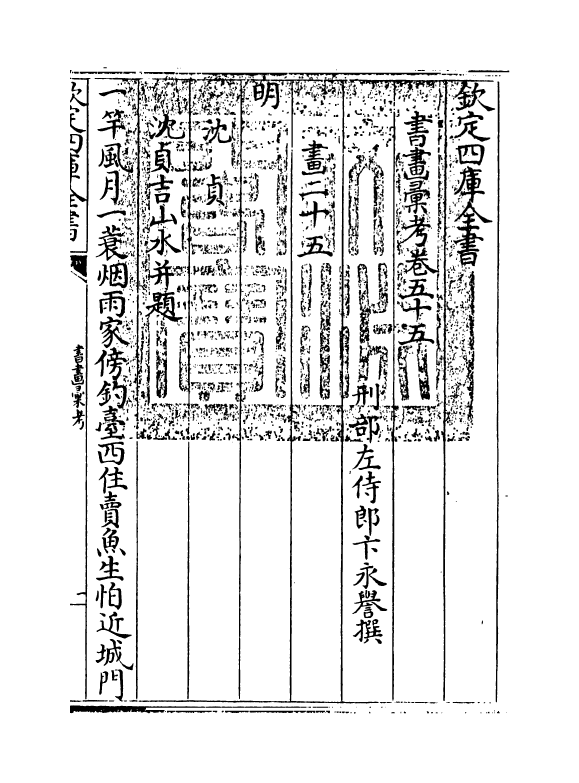 欽定四庫全書
書畫彚考卷五十五
刑部左侍郎卞永譽撰
畫二十五
明
沈貞
沈貞吉山水并題
一竿風月一蓑烟雨家傍釣臺西住賣魚生怕近城門
欽定四庫全書
書畫彚考